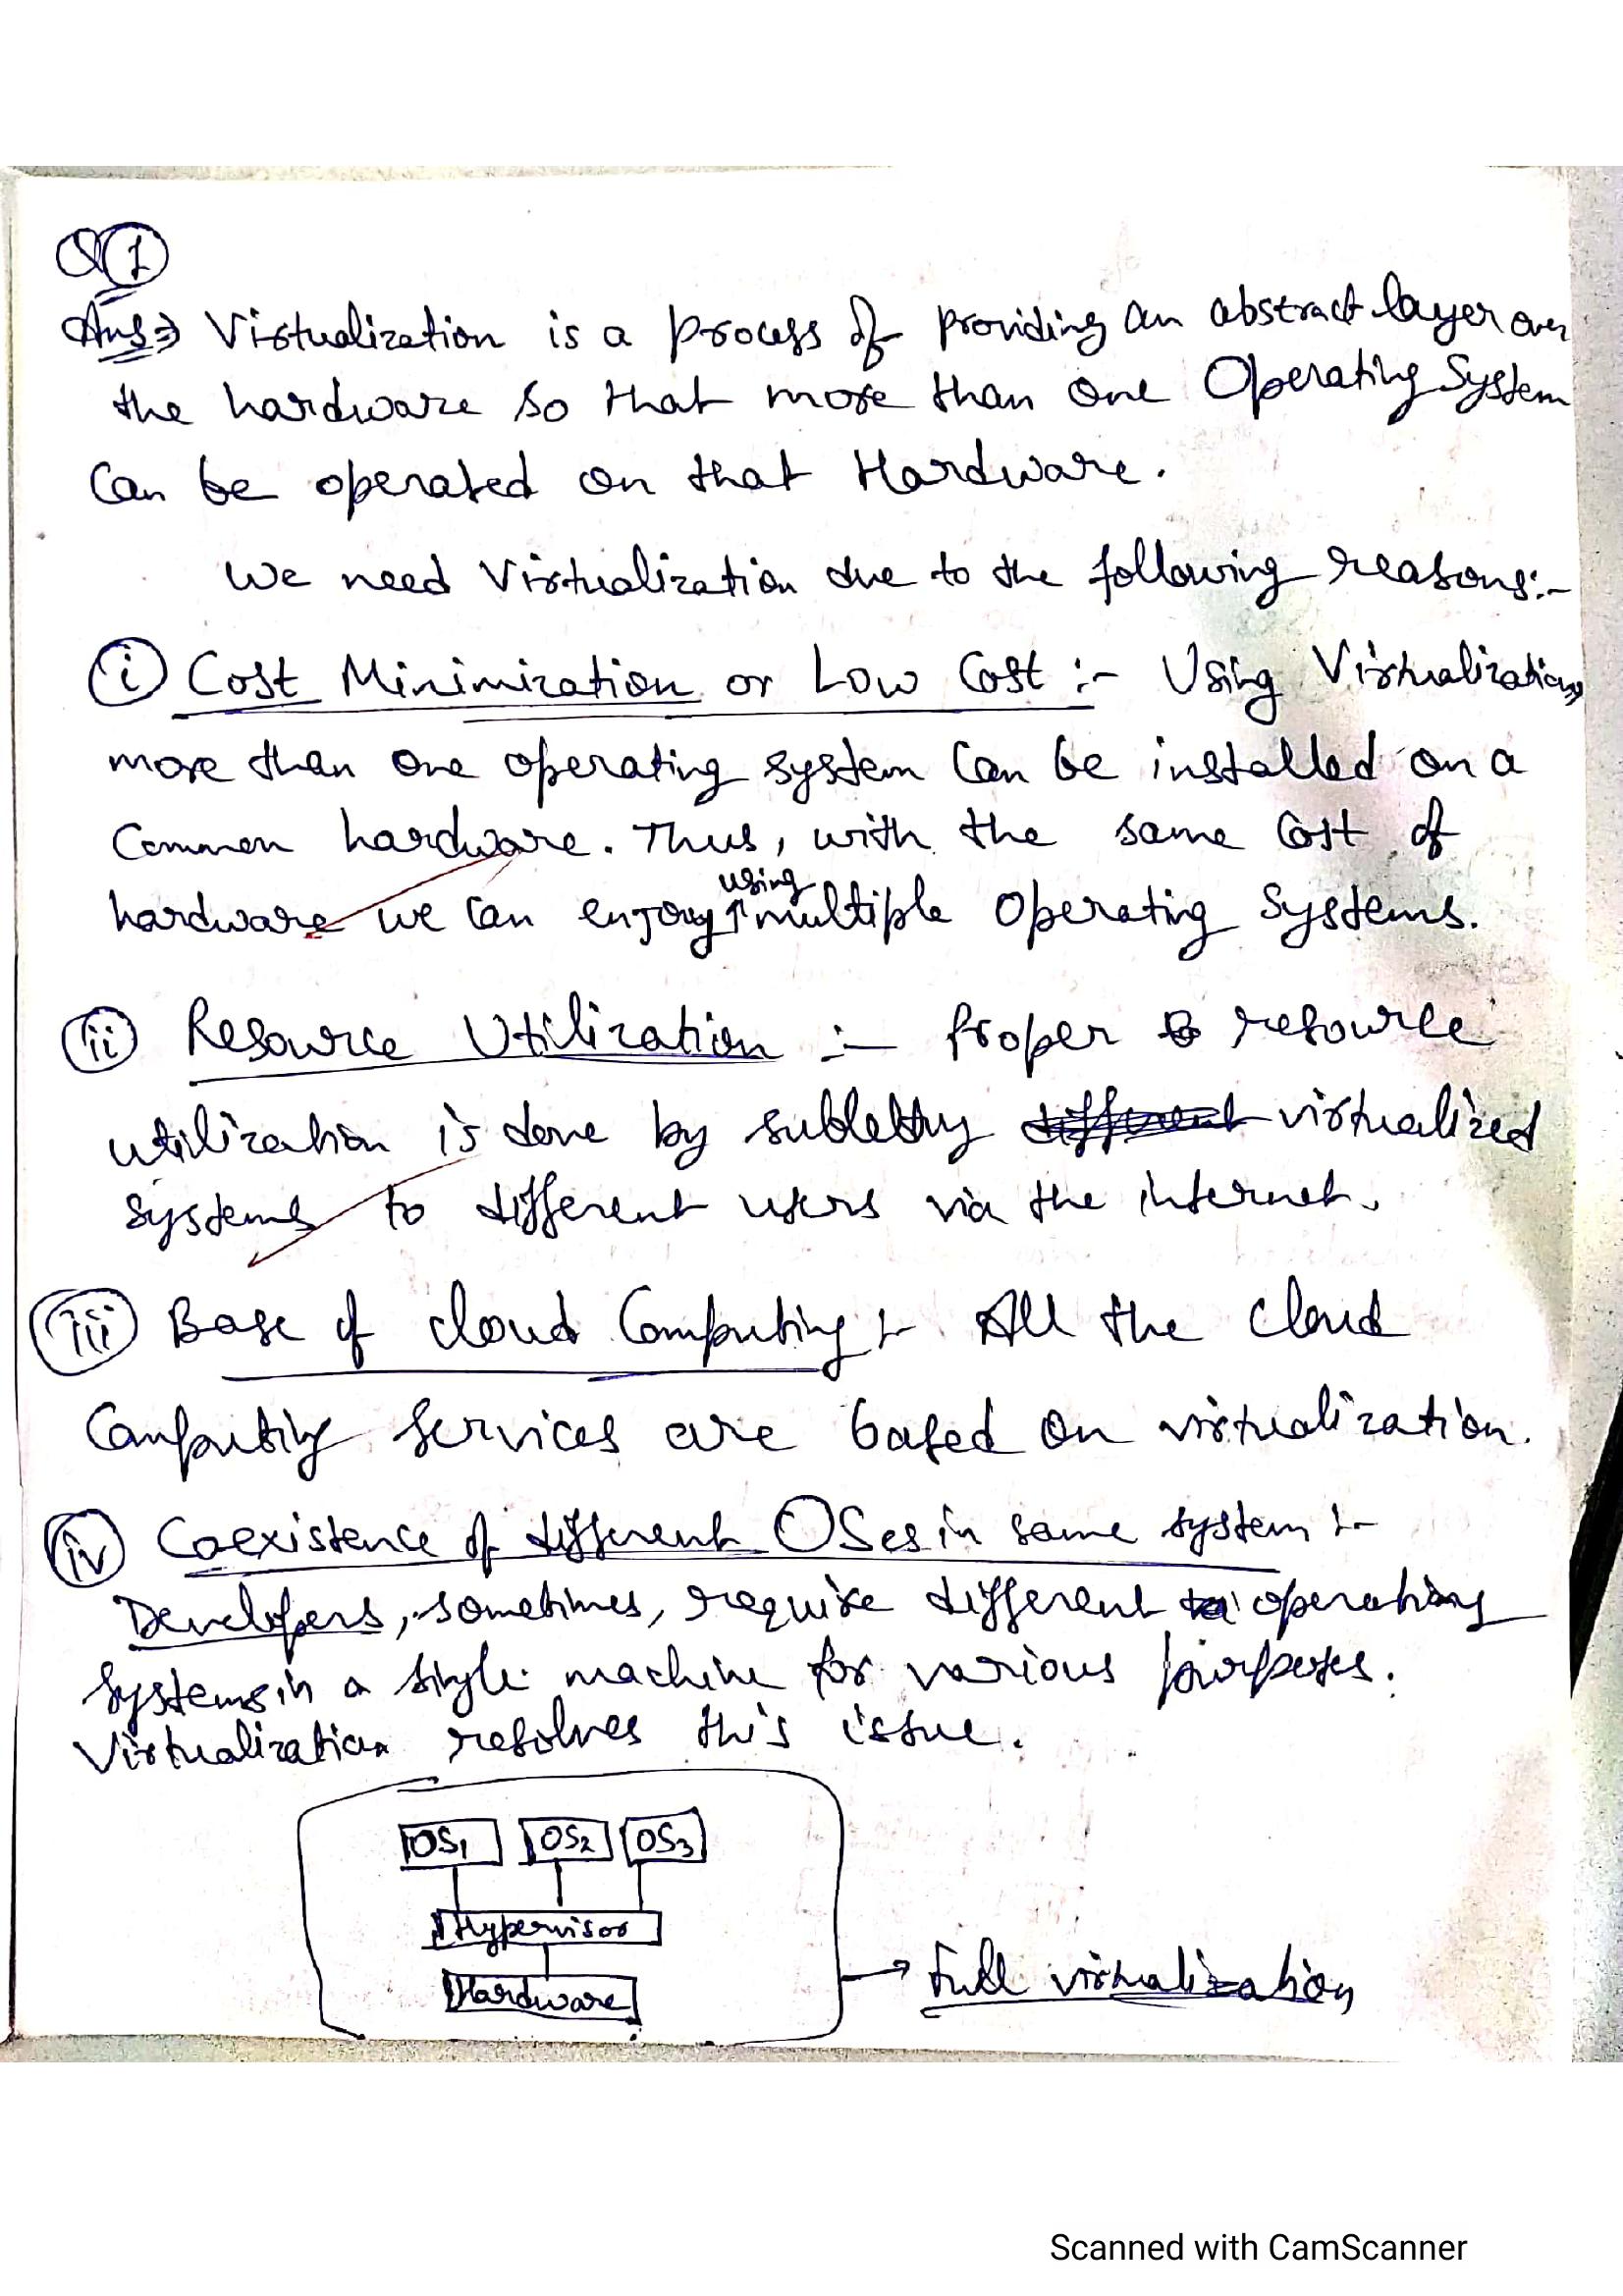 Q 1
Ans⇒ Virtualization is a process of providing an abstract layer over
the hardware so that more than one Operating System
can be operated on that Hardware.
We need Virtualization due to the following reasons:-
(i) Cost Minimization or Low Cost :- Using Virtualization,
more than one operating system can be installed on a
common hardware. Thus, with the same cost of
hardware we can enjoy using multiple Operating Systems.
(ii) Resource Utilization :- Proper resource
utilization is done by virtualized
systems to different users via the internet.
(iii) Base of cloud Computing :- All the cloud
Computing services are based on virtualization.
(iv) Coexistence of different OSes in same system :-
Developers, sometimes, require different operating
systems in a single machine for various purposes.
Virtualization resolves this issue.
OS1 OS2 OS3
Hypervisor
Hardware
→ Full virtualization
Scanned with CamScanner